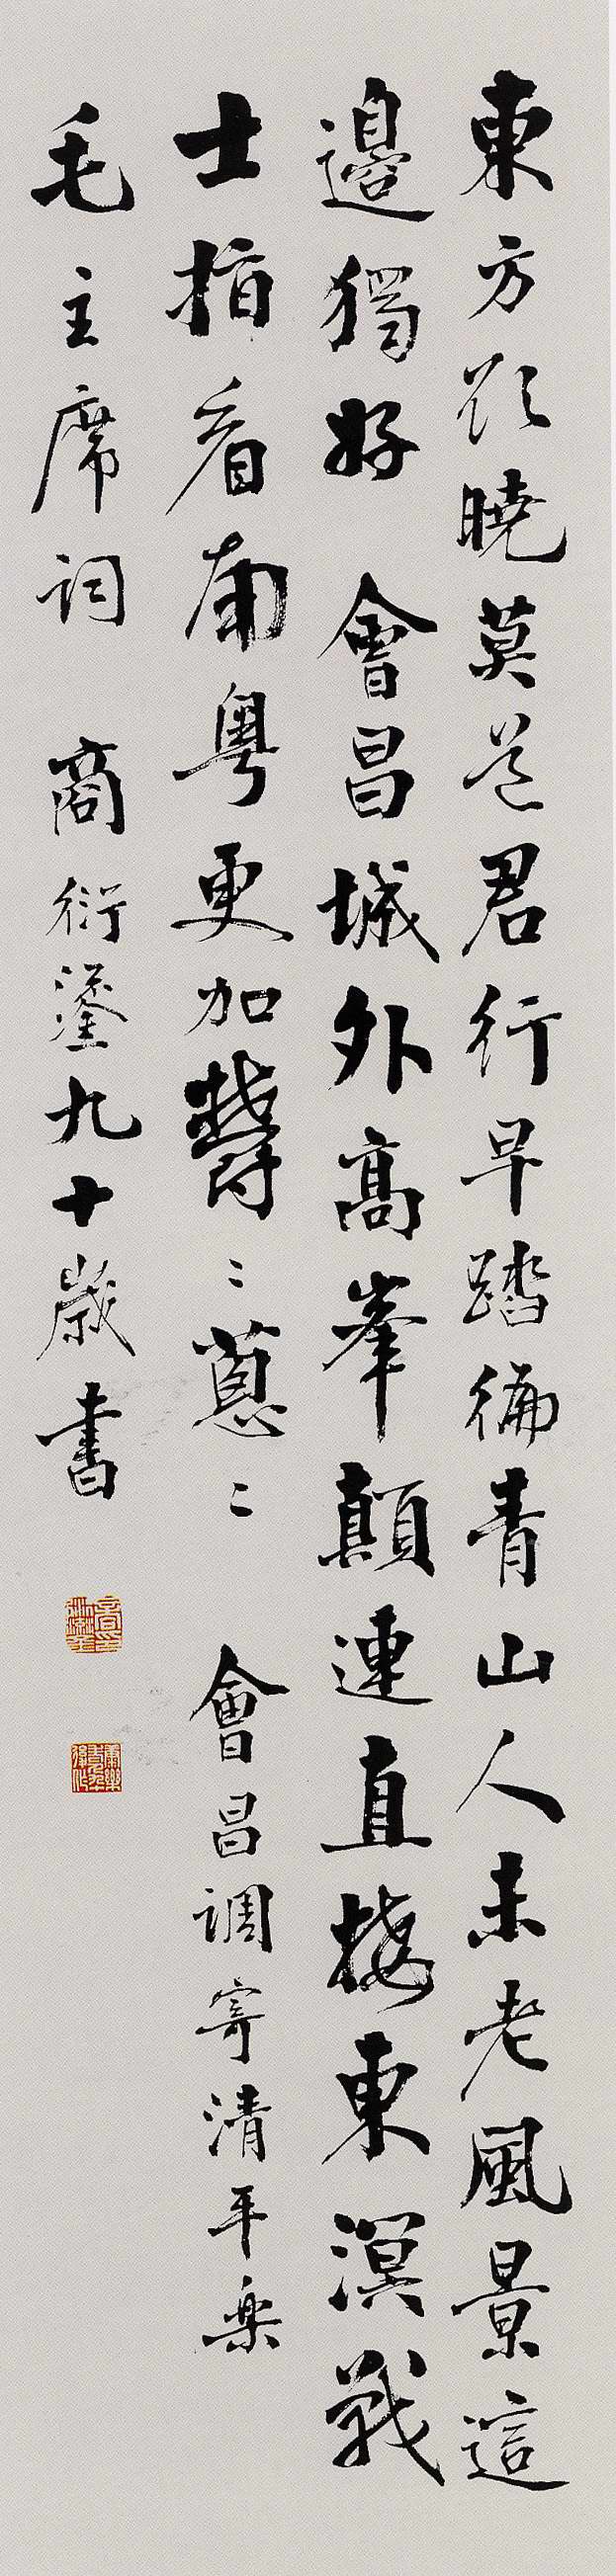 東方欲曉莫道君行早踏徧青山人未老風景這
邊獨好 會昌城外高峯顛連直接東溟戰
士指看南粵更加鬱〻蔥〻 會昌調寄清平樂
毛主席詞 商衍鎏九十歲書